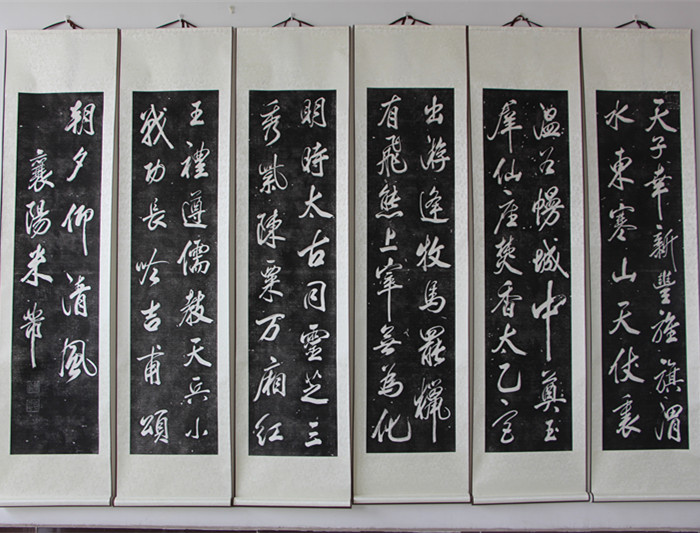 天子幸新豐旌旗渭
水東寒山天仗裏
温谷幔城中奠玉
羣仙座焚香太乙宮
出游逢牧馬罷獵
有飛熊上宰無為化
明時太古同靈芝三
秀紫陳粟万廂紅
王禮遵儒教天兵小
戰功長吟吉甫頌
朝夕仰清風
襄陽米芾